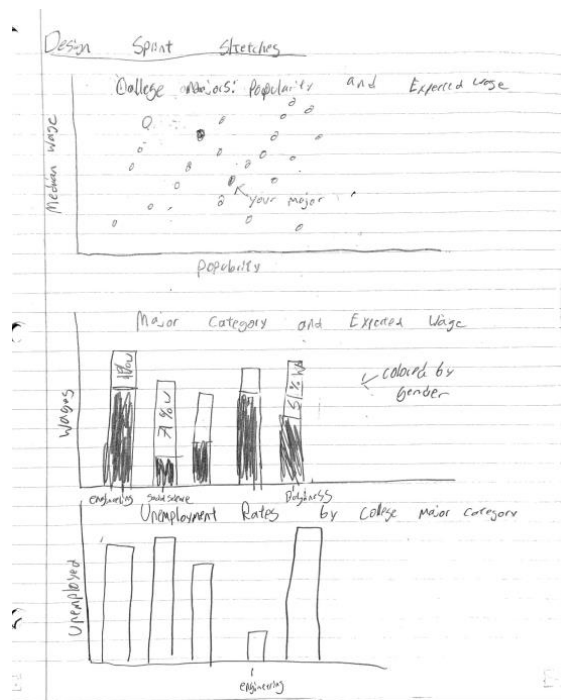 Design Sprint Sketches
College Majors: Popularity and Expected wage
Median Wage
your major
Popularity
Major Category and Expected Wage
Wages
71%W
51%W
colored by
gender
engineering
Social Science
Business
Unemployment Rates by College Major Category
Unemployed
engineering